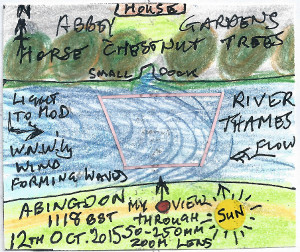 HOUSE
ABBEY GARDENS
HORSE CHESTNUT TREES
SMALL DOCK
LIGHT
TO MOD.
W.N.W'LY
WIND
FORMING WAVES
RIVER
THAMES
FLOW
ABINGDON
1118 BST
12TH OCT. 2015
MY VIEW
THROUGH
50-250MM
ZOOM LENS
SUN